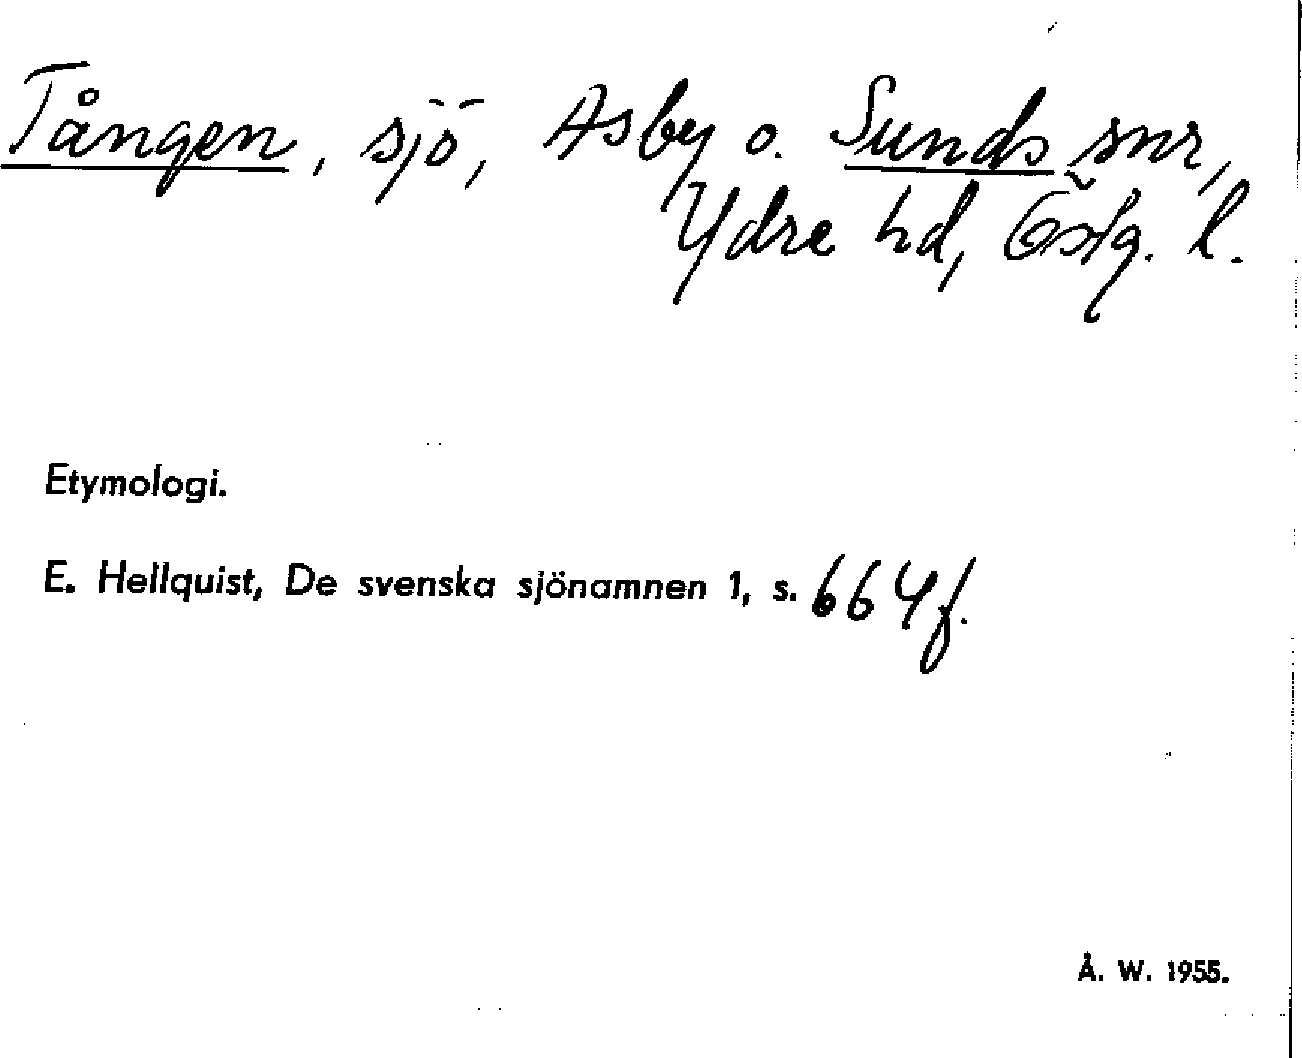 Tången, sjö, Asby o. Sunds snr,
Ydre hd, Östg. l.
Etymologi.
E. Hellquist, De svenska sjönamnen 1, s. 664 f.
Å. W. 1955.